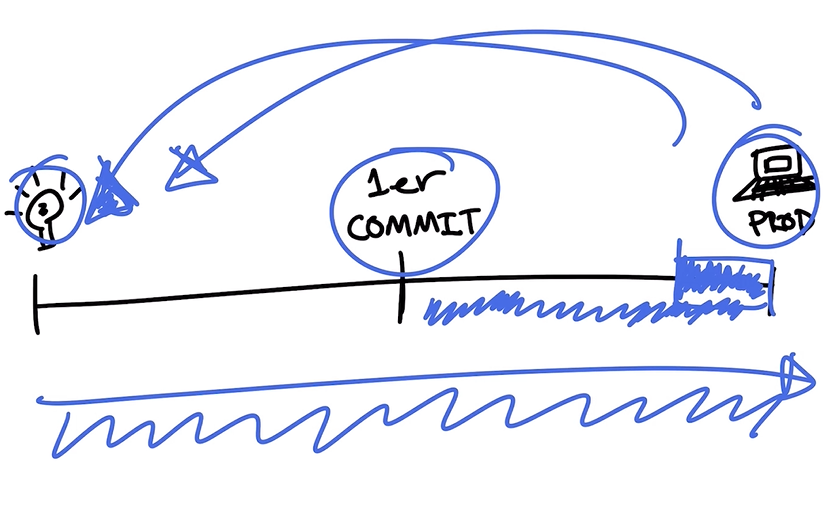 1er
COMMIT
PROD